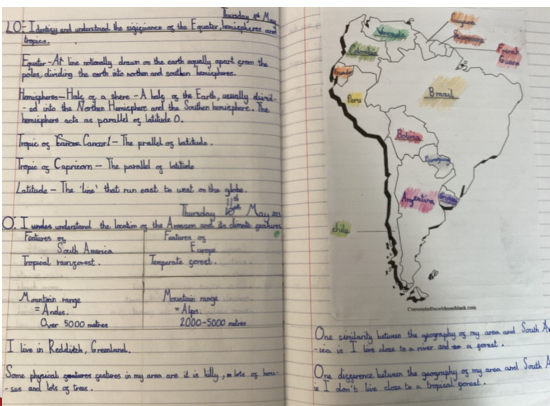 Thursday May
LO: I identify and understand the significance of the Equator, hemispheres and
tropics.
Equator - A line notionally drawn on the earth equally apart from the
poles, dividing the earth into northern and southern hemispheres.
Hemisphere - Half of a sphere - A half of the Earth, usually divid-
-ed into the Northern Hemisphere and the Southern hemisphere. The
hemisphere acts as parallel of latitude 0.
Tropic of Cancer - The parallel of latitude.
Tropic of Capricorn - The parallel of latitude
Latitude - The 'line' that run east to west on the globe.
Thursday May
O: I understand the location of the Amazon and its climate
Features of
South America
Features of
Europe
Tropical rainforest.
Temperate forest.
Mountain range
= Andes.
Over 5000 metres
Mountain range
= Alps.
2000-5000 metres
I live in Redditch,
Some physical features in my area are it is hilly, lots of hou-
-ses and lots of trees.
Venezuela
Colombia
French
Guiana
Peru
Brazil
Bolivia
Argentina
chile
One similarity between the geography of my area and South A
is I live close to a river and a forest.
One difference between the geography of my area and South A
I don't live close to a tropical forest.